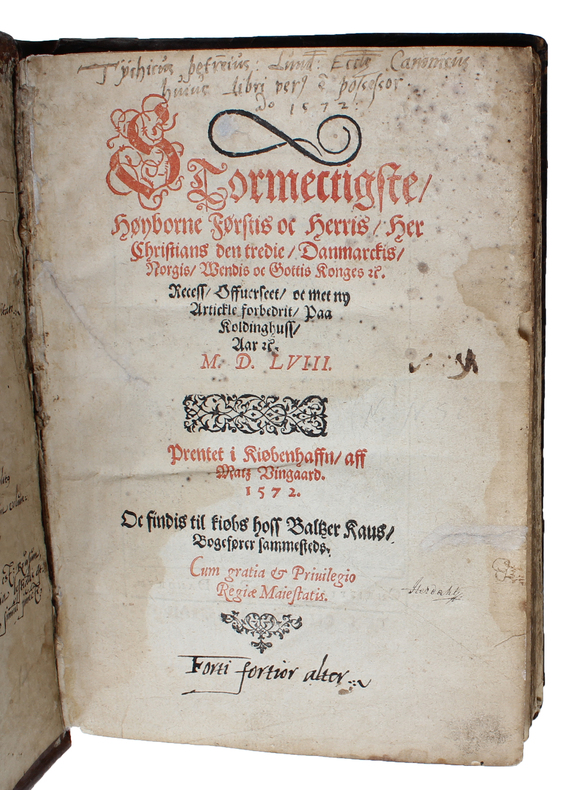 Tychicus petreius Lund: Eccles Canonicus
huius libri verus ē possessor
Ao 1572.
STormectigste/
Høyborne Førstis oc Herris/ Her
Christians den tredie/ Danmarckis/
Norgis/ Wendis oc Gottis Konges ꝛc.
Recess/ Offuerseet/ oc met ny
Artickle forbedrit/ Paa
Koldinghuss/
Aar ꝛc.
M. D. LVIII.
Prentet i Kiøbenhaffn/ aff
Matz Vingaard.
1572.
Oc findis til kiøbs hoss Baltzer Kaus/
Bogefører sammesteds.
Cum gratia & Priuilegio
Regiæ Maiestatis.
Forti fortior alter